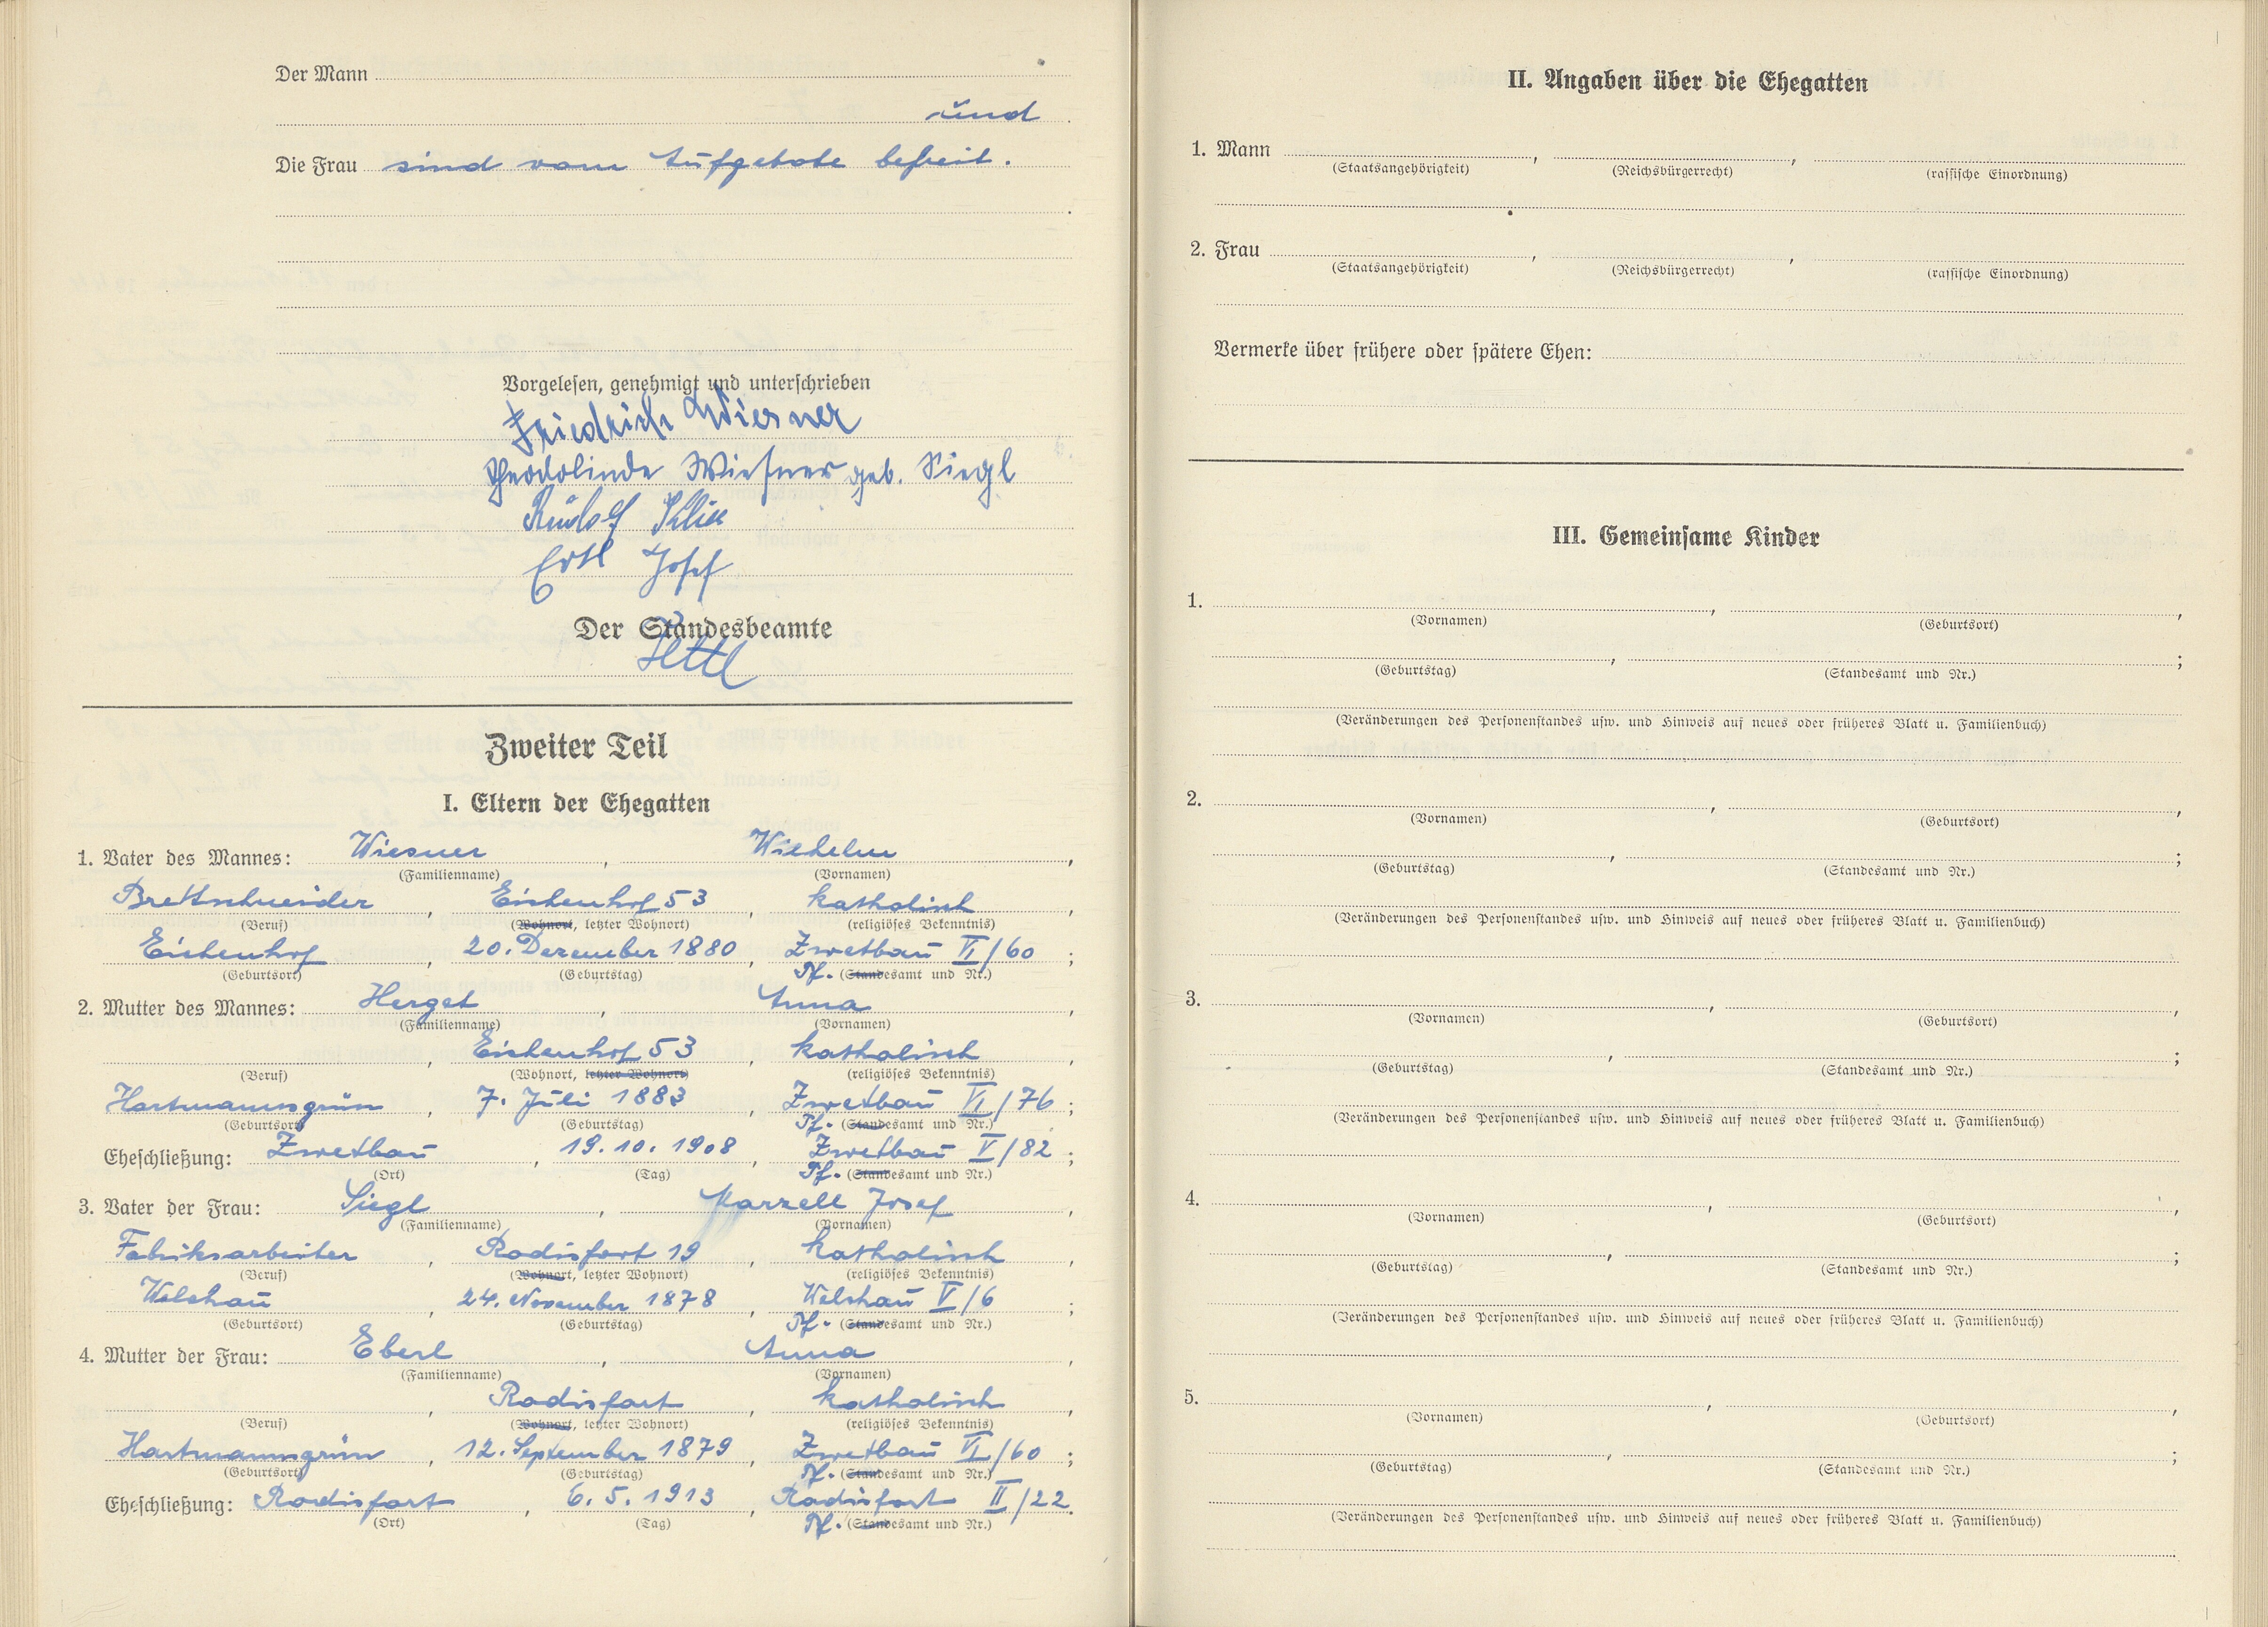 Der Mann
und
Die Frau sind vom Aufgebote befreit.
Vorgelesen, genehmigt und unterschrieben
Friedrich Wiesner
Theodolinde Wiesner geb. Siegl
Rudolf
Ertl Josef
Der Standesbeamte
Zweiter Teil
I. Eltern der Ehegatten
1. Vater des Mannes: Wiesner, Wilhelm,
(Familienname) (Vornamen)
Brettschneider, Eichenhof 53, katholisch,
(Beruf) (Wohnort, letzter Wohnort) (religiöses Bekenntnis)
Eichenhof, 20. Dezember 1880, Zwetbau VI/60;
(Geburtsort) (Geburtstag) Pf. (Standesamt und Nr.)
2. Mutter des Mannes: Herget, Anna,
(Familienname) (Vornamen)
, Eichenhof 53, katholisch,
(Beruf) (Wohnort, letzter Wohnort) (religiöses Bekenntnis)
Hartmannsgrün, 7. Juli 1883, Zwetbau VI/76;
(Geburtsort) (Geburtstag) Pf. (Standesamt und Nr.)
Eheschließung: Zwetbau, 19.10.1908, Zwetbau V/82;
(Ort) (Tag) Pf. (Standesamt und Nr.)
3. Vater der Frau: Siegl, Marzell Josef,
(Familienname) (Vornamen)
Fabriksarbeiter, Rodisfort 19, katholisch,
(Beruf) (Wohnort, letzter Wohnort) (religiöses Bekenntnis)
Welchau, 24. November 1878, Welchau V/6;
(Geburtsort) (Geburtstag) Pf. (Standesamt und Nr.)
4. Mutter der Frau: Eberl, Anna,
(Familienname) (Vornamen)
, Rodisfort, katholisch,
(Beruf) (Wohnort, letzter Wohnort) (religiöses Bekenntnis)
Hartmannsgrün, 12. September 1879, Zwetbau VI/60;
(Geburtsort) (Geburtstag) Pf. (Standesamt und Nr.)
Eheschließung: Rodisfort, 6.5.1913, Rodisfort II/22.
(Ort) (Tag) Pf. (Standesamt und Nr.)
II. Angaben über die Ehegatten
1. Mann , ,
(Staatsangehörigkeit) (Reichsbürgerrecht) (rassische Einordnung)
2. Frau , ,
(Staatsangehörigkeit) (Reichsbürgerrecht) (rassische Einordnung)
Vermerke über frühere oder spätere Ehen:
III. Gemeinsame Kinder
1. , ,
(Vornamen) (Geburtsort)
, ;
(Geburtstag) (Standesamt und Nr.)
(Veränderungen des Personenstandes usw. und Hinweis auf neues oder früheres Blatt u. Familienbuch)
2. , ,
(Vornamen) (Geburtsort)
, ;
(Geburtstag) (Standesamt und Nr.)
(Veränderungen des Personenstandes usw. und Hinweis auf neues oder früheres Blatt u. Familienbuch)
3. , ,
(Vornamen) (Geburtsort)
, ;
(Geburtstag) (Standesamt und Nr.)
(Veränderungen des Personenstandes usw. und Hinweis auf neues oder früheres Blatt u. Familienbuch)
4. , ,
(Vornamen) (Geburtsort)
, ;
(Geburtstag) (Standesamt und Nr.)
(Veränderungen des Personenstandes usw. und Hinweis auf neues oder früheres Blatt u. Familienbuch)
5. , ,
(Vornamen) (Geburtsort)
, ;
(Geburtstag) (Standesamt und Nr.)
(Veränderungen des Personenstandes usw. und Hinweis auf neues oder früheres Blatt u. Familienbuch)